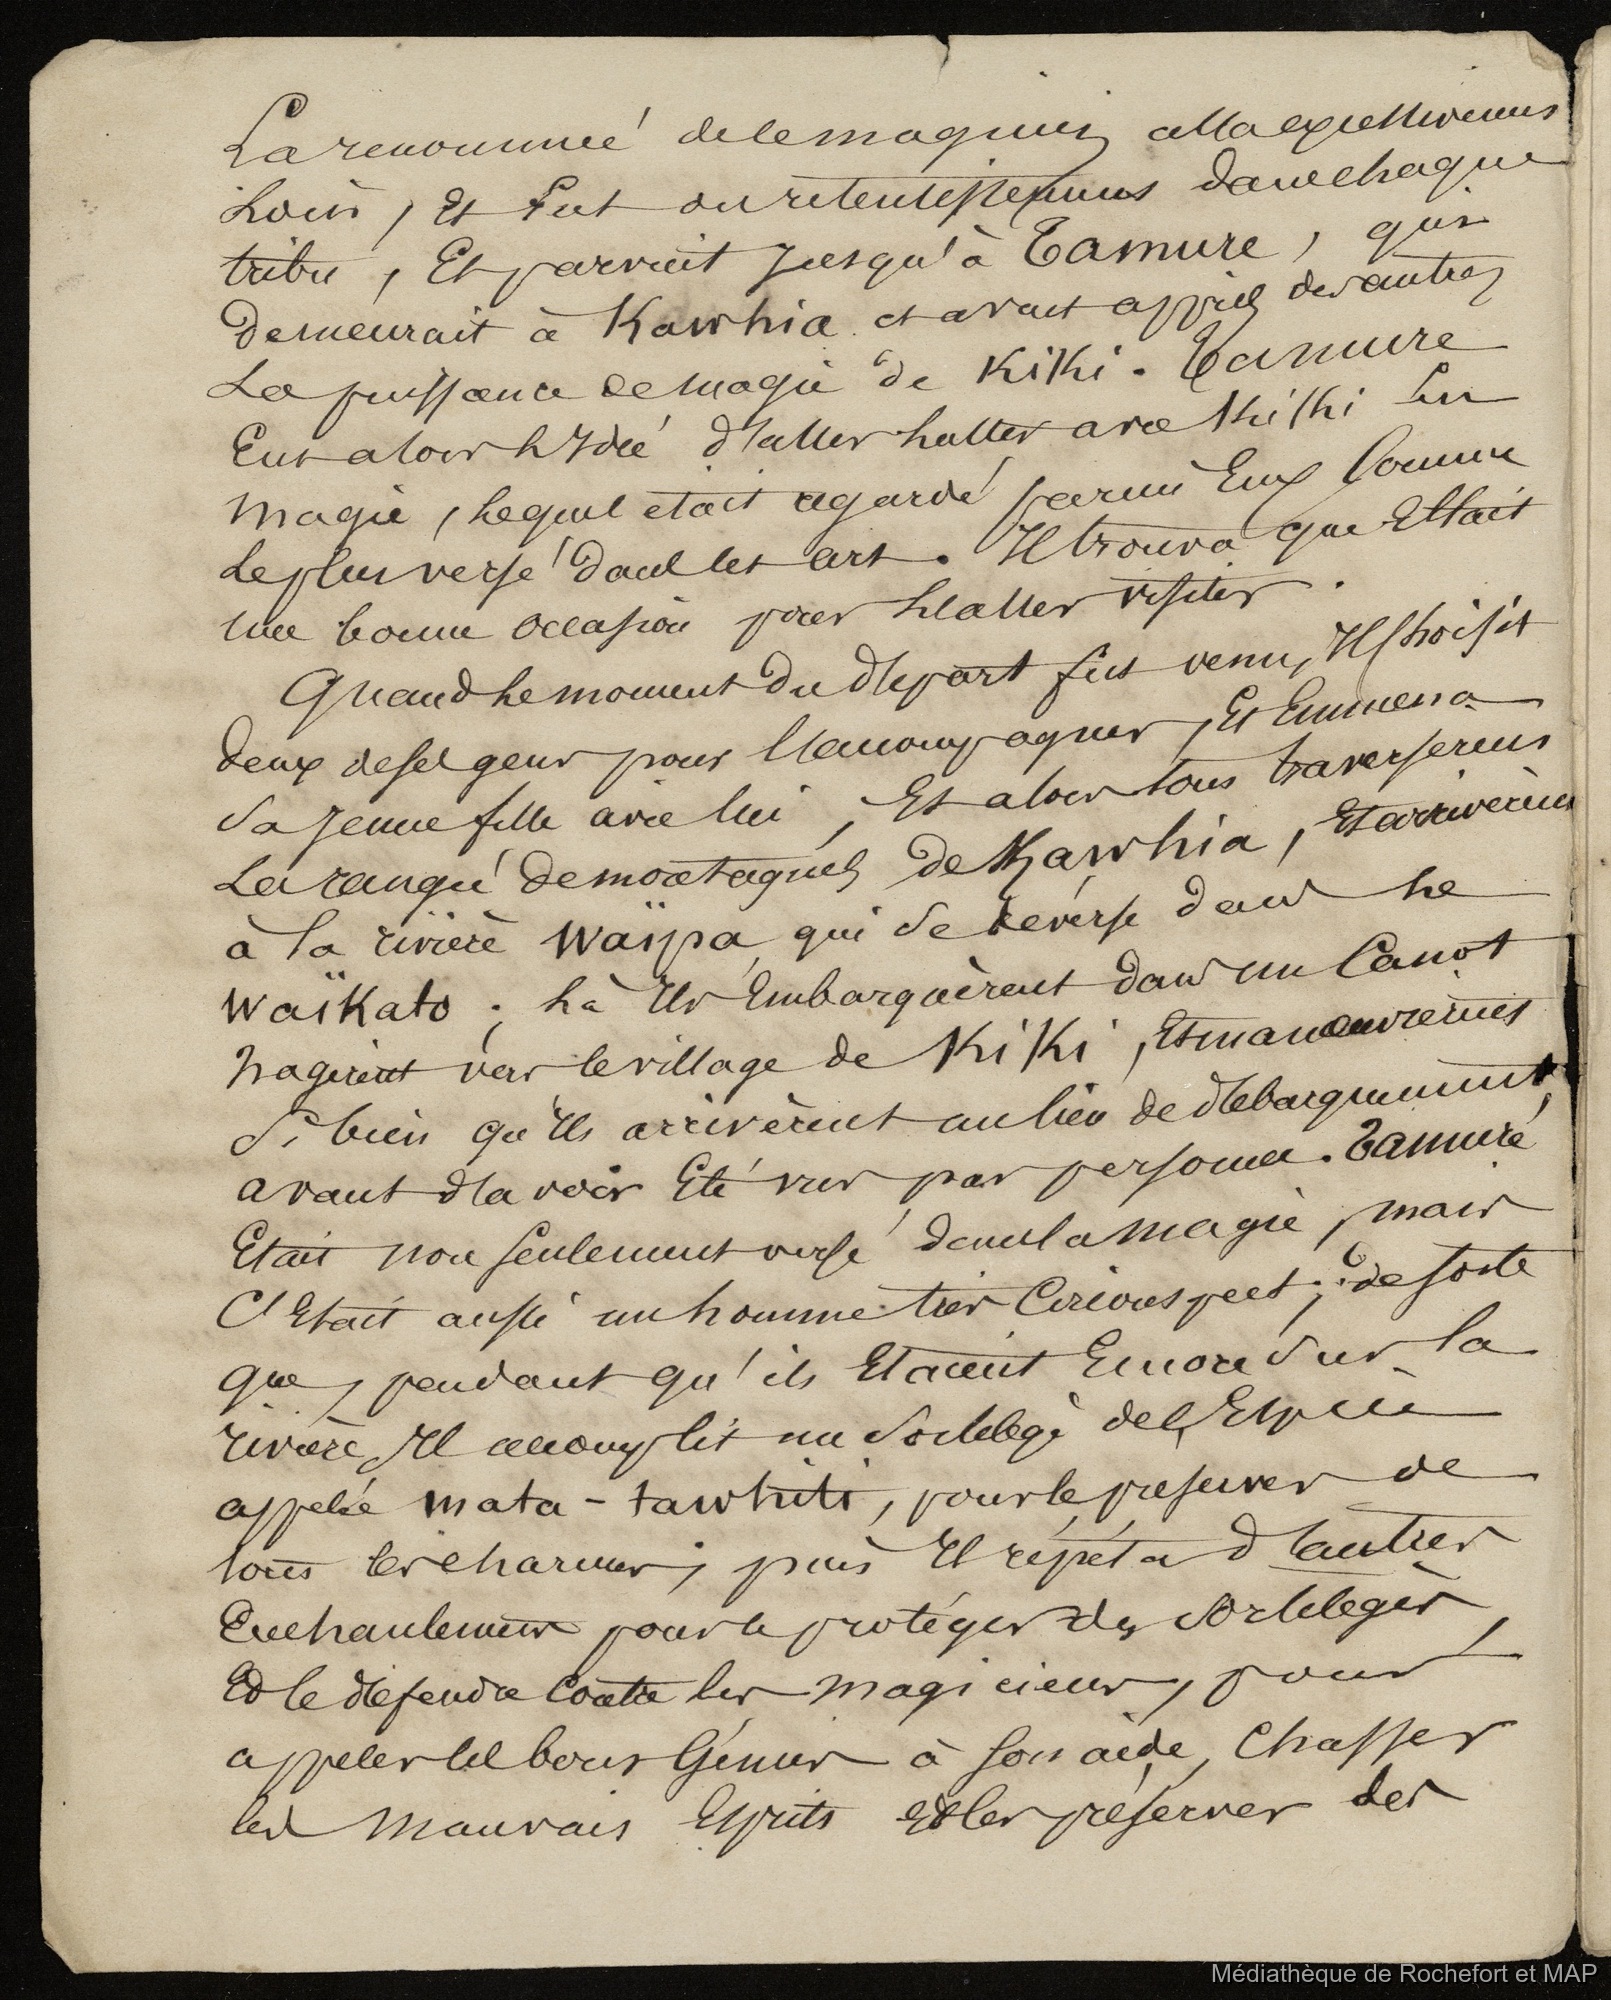 La renommée de le magicien alla excessivement
Loin, Et fut du retentissement dans chaque
tribu, Et parvint jusqu'à Tamure, qui
Demeurait à Kawhia et avait appris des autres
La puissance de magie de KiKi. Tamure
Eut alors l'Idée d'aller lutter avec KiKi en
magie, lequel était regardé parmi Eux Comme
Le plus versé dans cet art. Il trouva que C'Etait
une bonne occasion pour l'aller visiter.
Quand le moment du départ fut venu, Il choisit
deux de ses gens pour l'accompagner, Et Emmena
sa jeune fille avec lui, Et alors tous traversèrent
La rangée de montagnes de Kawhia, Et arrivèrent
à la rivière Waïpa qui se déverse dans le
Waïkato; là Ils Embarquèrent dans un Canot
nagèrent vers le village de KiKi, Et manœuvrèrent
Si bien qu'Ils arrivèrent au lieu de débarquement,
avant d'avoir Eté vus par personne. Tamure
Etait non seulement versé dans la magie, mais
C'Etait aussi un homme très Circonspect; de sorte
que, pendant qu'ils Etaient Encore sur la
rivière, Il accomplit un Sortilège de l'Espèce
appelée mata-tawhiti, pour le préserver de
tous les charmes; puis Il répéta d'autres
Enchantements pour le protéger des Sortilèges,
Et le défendre Contre les magiciens, pour
appeler les bons Génies à son aide, Chasser
les mauvais Esprits et les préserver des
Médiathèque de Rochefort et MAP